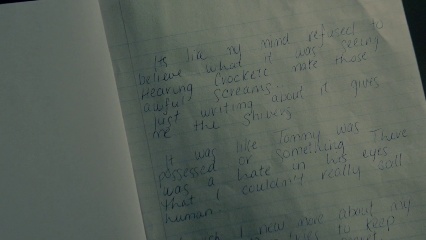 Its like my mind refused to
believe what it was seeing
Hearing Crockett make those
awful screams
just writing about it gives
me the shivers
It was like Tommy was
possessed or something There
was a hate in his eyes
that I couldn't really call
human.
more about my
to keep